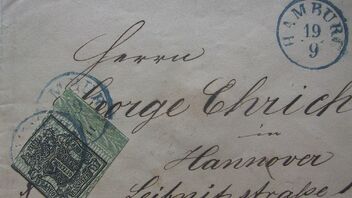 HAMBURG
19
9
Herrn
George Ehrich
in
Hannover
Leibnitzstraße 1